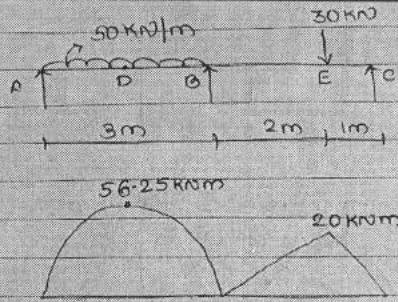 50 KN/m
30 KN
A D B E C
3m 2m 1m
56.25 KNm
20 KNm